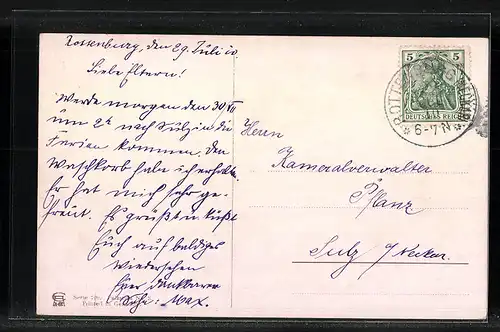 Rottenburg, den 29. Juli 10
Liebe Eltern!
Werde morgen den 30/VII
um 2h nach Sulz in die
Ferien kommen. Den
Waschkorb habe ich erhalten.
Er hat mich sehr ge-
freut. Es grüßt u. küßt
Euch auf baldiges
Wiedersehen
Euer dankbarer
Sohn: Max.
5 5
DEUTSCHES REICH
6-7 N
Herrn
Kameralverwalter
Pflanz
Sulz a/Neckar.
Serie